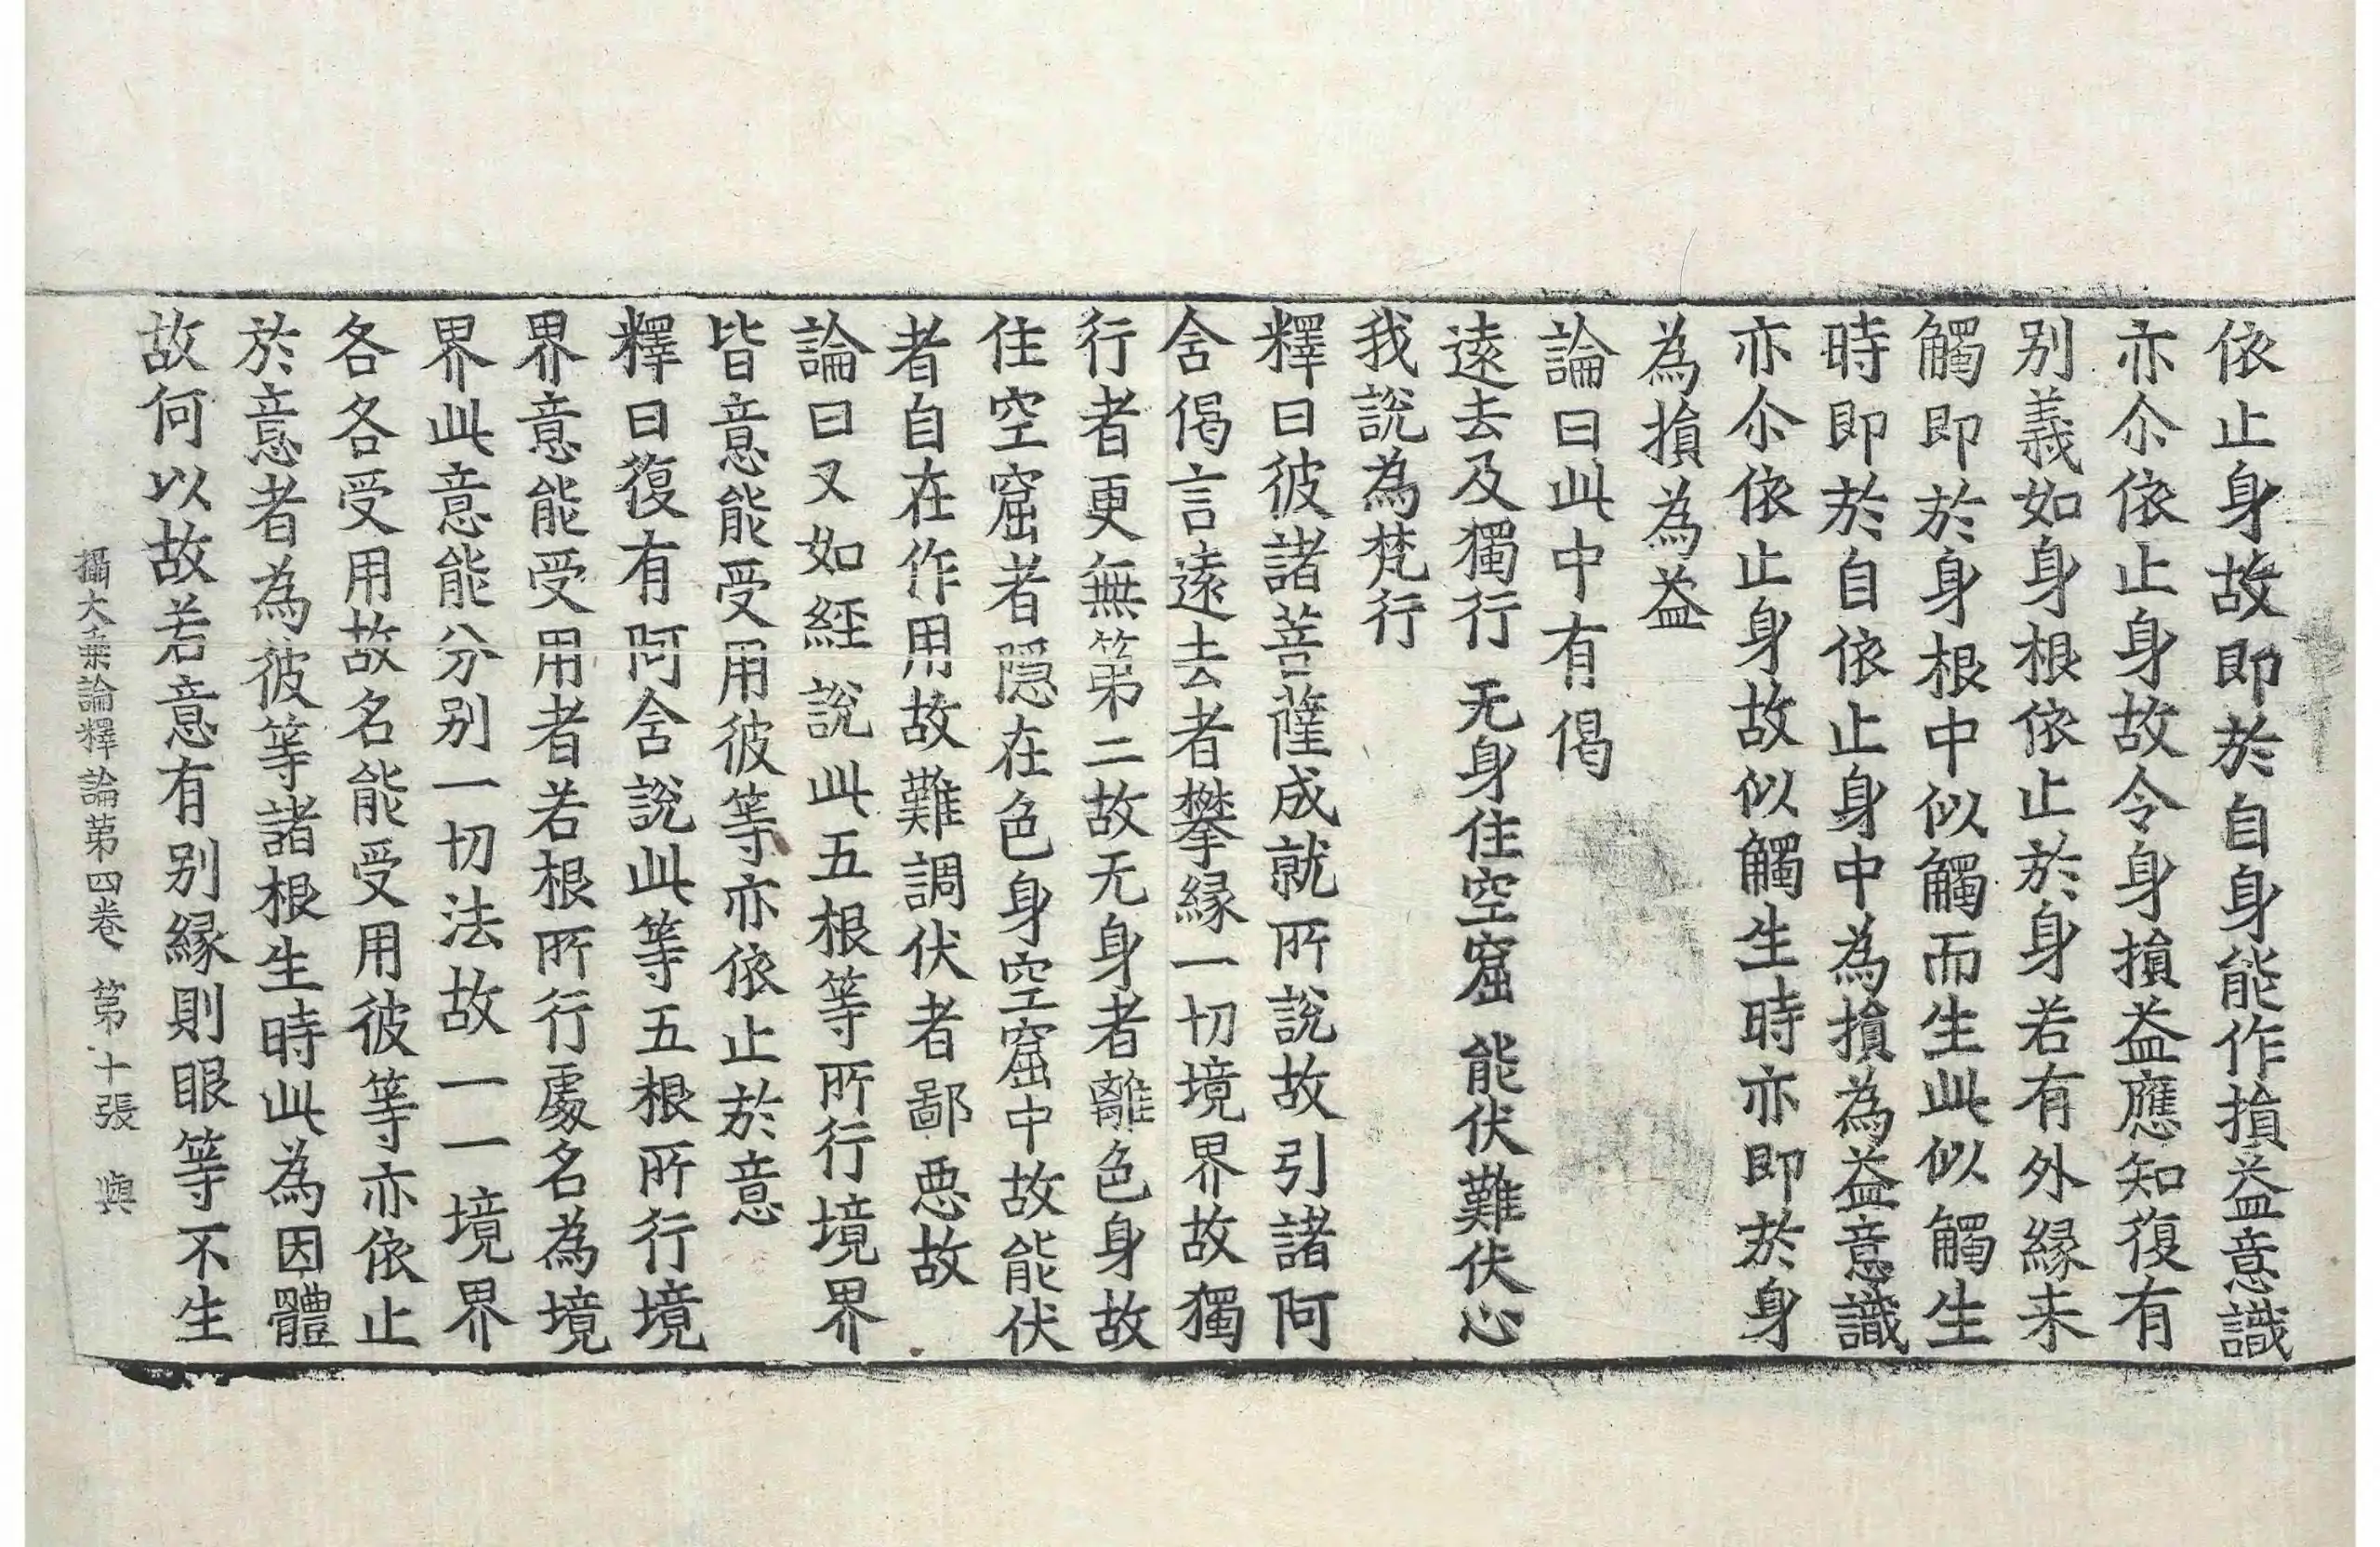 依止身故即於自身能作損益意識
亦尒依止身故令身損益應知復有
别義如身根依止於身若有外緣来
觸即於身根中似觸而生此似觸生
時即於自依止身中為損為益意識
亦尒依止身故似觸生時亦即於身
為損為益
論曰此中有偈
逺去及獨行 无身住空窟 能伏難伏心
我說為梵行
釋曰彼諸菩薩成就所說故引諸阿
舍偈言逺去者攀緣一切境界故獨
行者更無第二故无身者離色身故
住空窟者隱在色身空窟中故能伏
者自在作用故難調伏者鄙惡故
論曰又如經說此五根等所行境界
皆意能受用彼等亦依止於意
釋曰復有阿舍說此等五根所行境
界意能受用者若根所行處名為境
界此意能分别一切法故一一境界
各各受用故名能受用彼等亦依止
於意者為彼等諸根生時此為因體
故何以故若意有别緣則眼等不生
攝大乗論釋論第四卷 第十張 輿